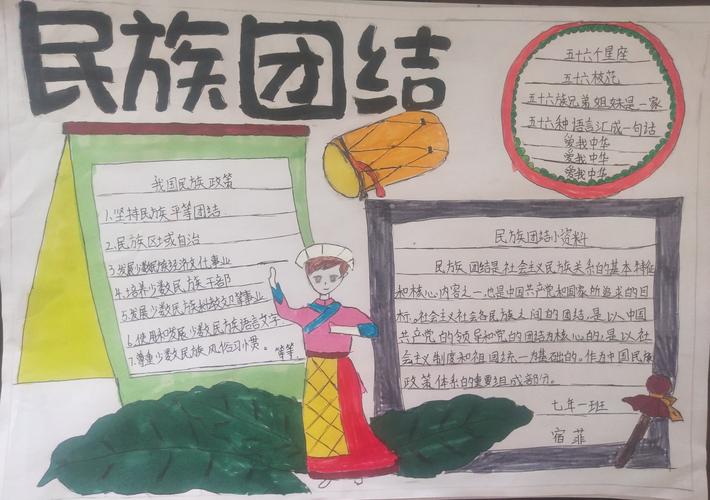 民族团结
五十六个星座
五十六枝花
五十六族兄弟姐妹是一家
五十六种语言汇成一句话
爱我中华
爱我中华
爱我中华
我国民族政策
1.坚持民族平等团结
2.民族区域自治
3.发展少数民族经济文化事业
4.培养少数民族干部
5.发展少数民族科教卫等事业
6.使用和发展少数民族语言文字
7.尊重少数民族风俗习惯。等等
民族团结小资料
民族团结是社会主义民族关系的基本特征
和核心内容之一,也是中国共产党和国家所追求的目
标。社会主义社会各民族之间的团结,是以中国
共产党的领导和党的团结为核心的,是以社
会主义制度和祖国统一为基础的。作为中国民族
政策体系的重要组成部分。
七年一班
宿菲